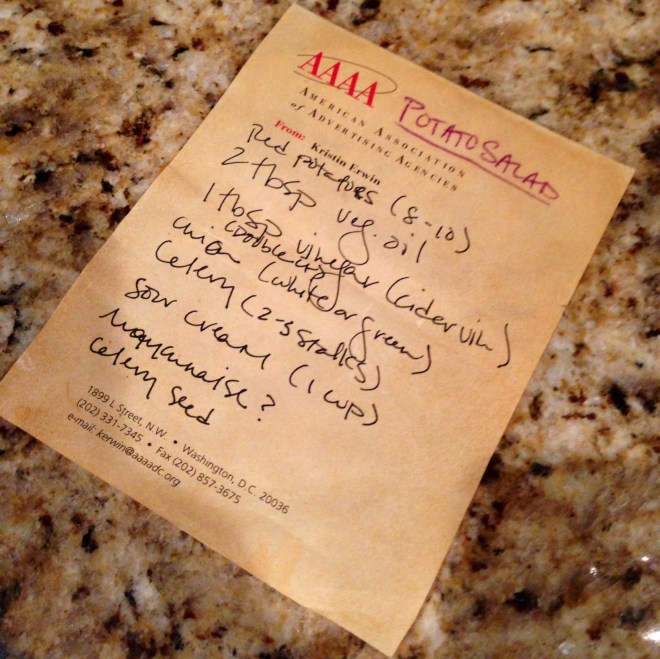 AAAA
POTATO SALAD
AMERICAN ASSOCIATION
of ADVERTISING AGENCIES
From: Kristin Erwin
Red potatoes (8-10)
2 tbsp veg. oil
1 tbsp vinegar (cider vin)
(double it)
onion (white or green)
Celery (2-3 stalks)
Sour cream (1 cup)
Mayonnaise?
Celery seed
1899 L Street, N.W. • Washington, D.C. 20036
(202) 331-7345 • Fax (202) 857-3675
e-mail-kerwin@aaaadc.org